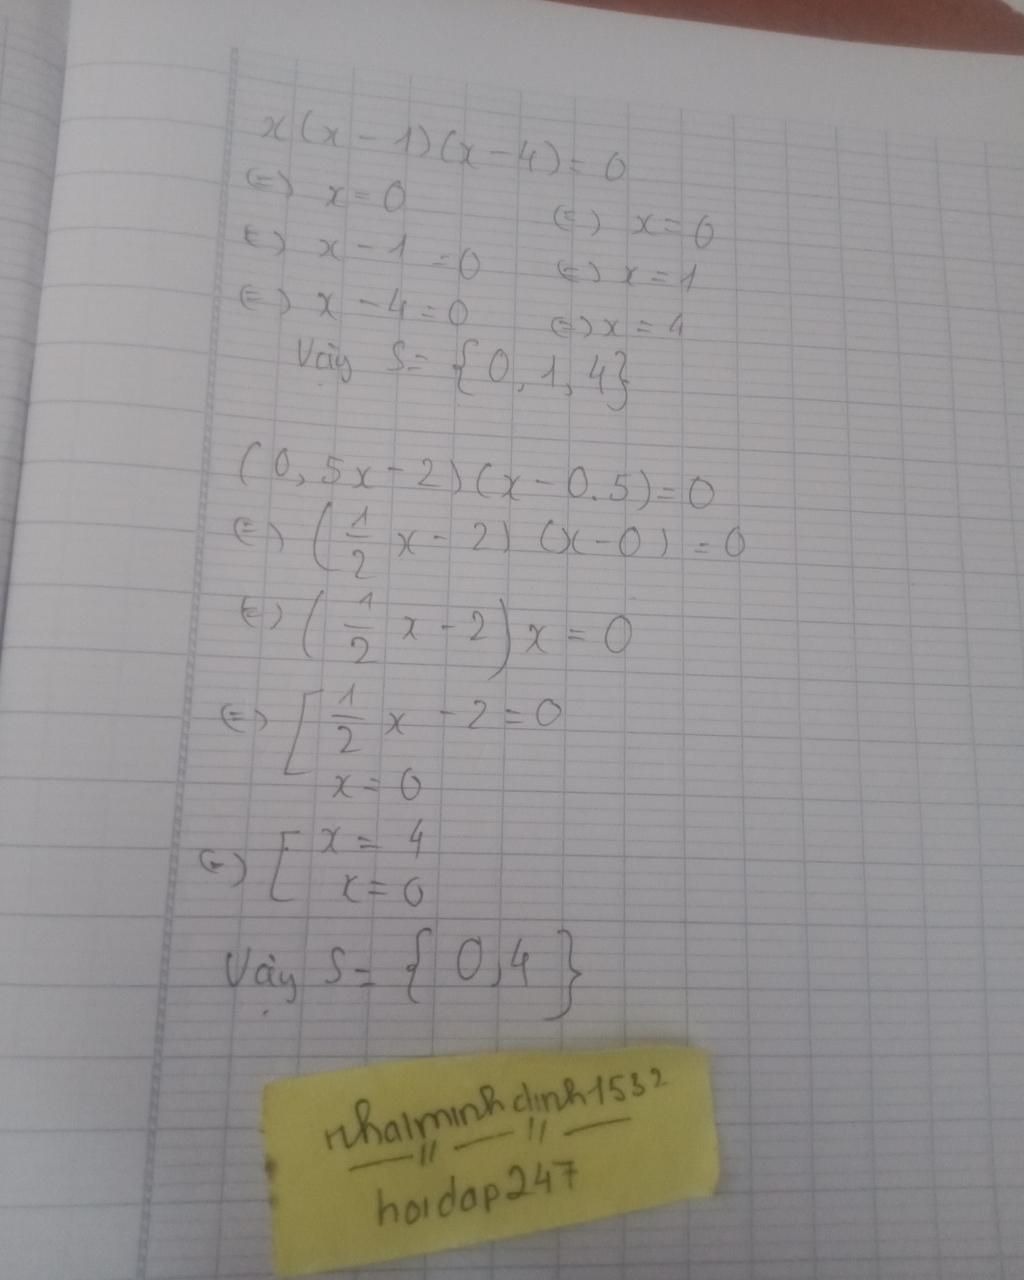 x(x-1)(x-4)=0
(=) x=0 (=) x=0
(=) x-1=0 (=) x=1
(=) x-4=0 (=) x=4
Vậy S={0,1,4}
(0,5x-2)(x-0.5)=0
(=) (1/2 x-2) (x-0)=0
(=) (1/2 x-2)x=0
(=) [1/2 x-2=0
x=0
(=) [x=4
x=0
Vậy S={0,4}
nhalminhdinh1532
hoidap247